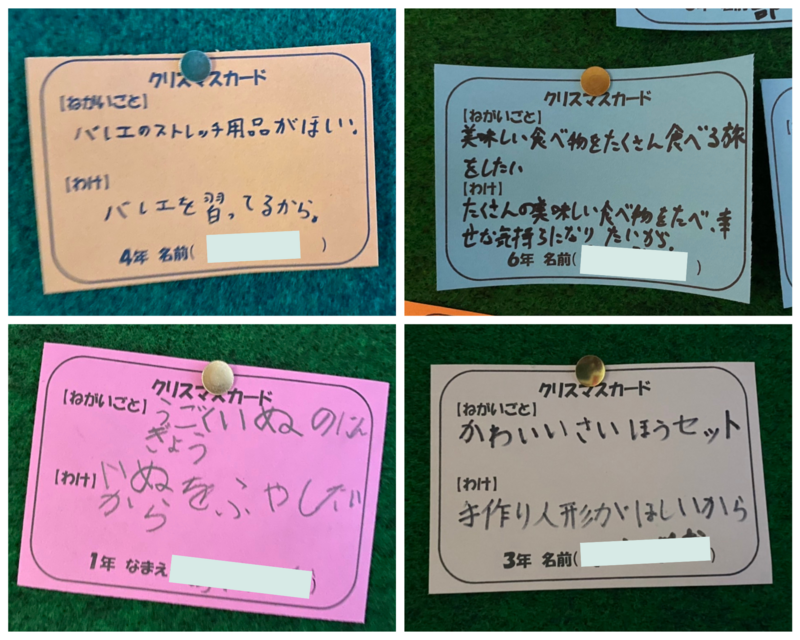 クリスマスカード
【ねがいごと】
バレエのストレッチ用品がほしい。
【わけ】
バレエを習ってるから。
4年 名前( )
クリスマスカード
【ねがいごと】
美味しい食べ物をたくさん食べる旅
をしたい
【わけ】
たくさんの美味しい食べ物をたべ、幸
せな気持ちになりたいから。
6年 名前( )
クリスマスカード
【ねがいごと】
うごくいぬのにん
ぎょう
【わけ】
いぬをふやしたい
から
1年 なまえ( )
クリスマスカード
【ねがいごと】
かわいいさいほうセット
【わけ】
手作り人形がほしいから
3年 名前( )